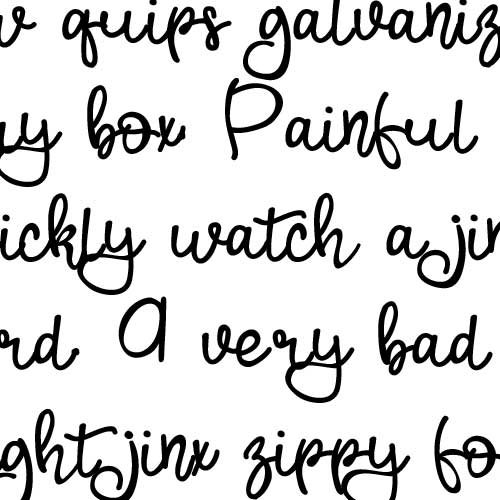 w quips galvaniz
ay box Painful
ickly watch a jin
rd. A very bad
ghtjinx zippy fo